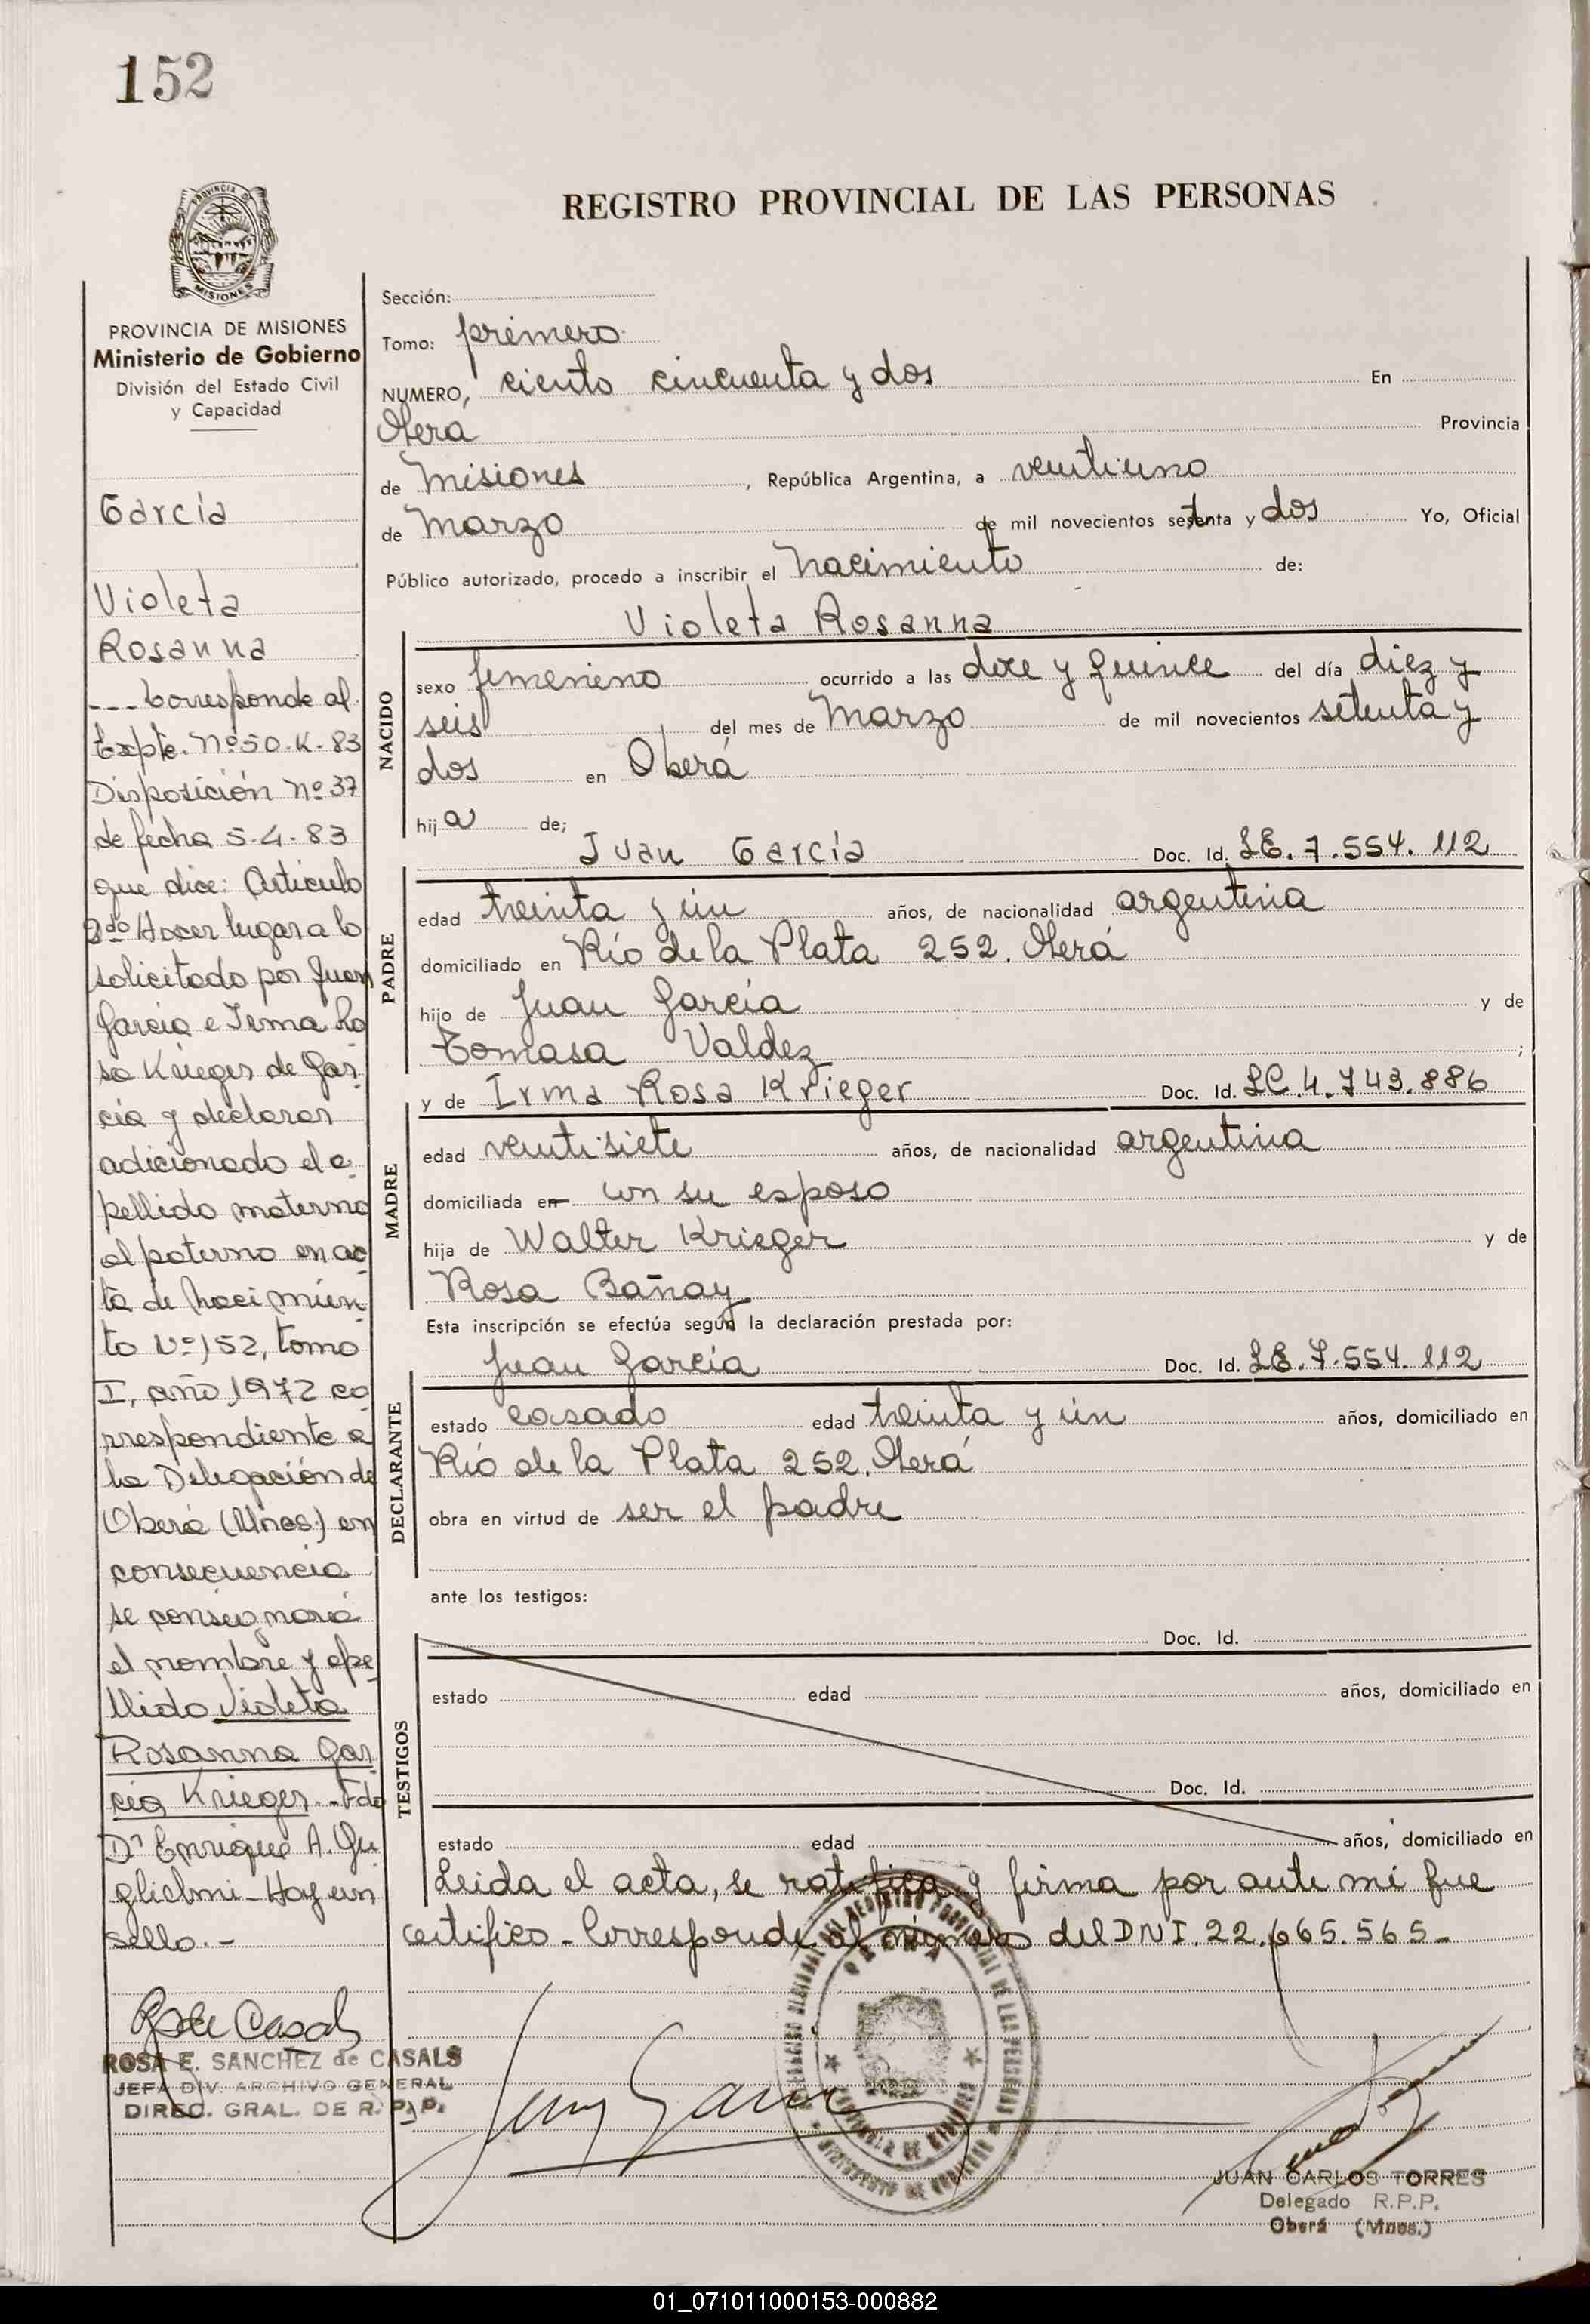 152
PROVINCIA MISIONES
REGISTRO PROVINCIAL DE LAS PERSONAS
PROVINCIA DE MISIONES
Ministerio de Gobierno
División del Estado Civil
y Capacidad
García
Violeta
Rosanna
--- Corresponde al
Expte. Nº 50-K-83
Disposición Nº 37
de fecha 5-4-83
que dice: Articulo
2do Hacer lugar a lo
solicitado por Juan
García e Irma Ro
sa Krieger de Gar-
cía y declarar
adicionado el a-
pellido materno
al paterno en ac
ta de nacimien
to Nº 152, tomo
I, año 1972 co
rrespondiente a
la Delegación de
Oberá (Mnes.) en
consecuencia
se consignará
el nombre y ape-
llido Violeta
Rosanna Gar
cía Krieger.-Fdo
Dr Enrique A. Gu
glielmi-Hay un
sello.-
ROSA E. SANCHEZ de CASALS
JEFA DIV. ARCHIVO GENERAL
DIREC. GRAL. DE R. P. P.
Sección:
Tomo: primero
NUMERO, ciento cincuenta y dos En
Oberá Provincia
de Misiones, República Argentina, a veintiuno
de Marzo de mil novecientos setenta y dos Yo, Oficial
Público autorizado, procedo a inscribir el Nacimiento de:
Violeta Rosanna
NACIDO
sexo femenino ocurrido a las doce y quince del día diez y
seis del mes de Marzo de mil novecientos setenta y
dos en Oberá
hija de;
Juan García Doc. Id. LE. 7.554.112
PADRE
edad treinta y ún años, de nacionalidad argentina
domiciliado en Río de la Plata 252. Oberá
hijo de Juan García y de
Tomasa Valdez;
y de Irma Rosa Krieger Doc. Id. LC.4.743.886
MADRE
edad veintisiete años, de nacionalidad argentina
domiciliada en con su esposo
hija de Walter Krieger y de
Rosa Bañay
Esta inscripción se efectúa según la declaración prestada por:
Juan García Doc. Id. LE. 7.554.112
DECLARANTE
estado casado edad treinta y ún años, domiciliado en
Río de la Plata 252. Oberá
obra en virtud de ser el padre
ante los testigos:
Doc. Id.
TESTIGOS
estado edad años, domiciliado en
Doc. Id.
estado edad años, domiciliado en
Leida el acta, se ratifica y firma por ante mí que
certifico - Corresponde al número del DNI. 22.665.565-
JUAN CARLOS TORRES
Delegado R.P.P.
Oberá (Mnes.)
01_071011000153-000882